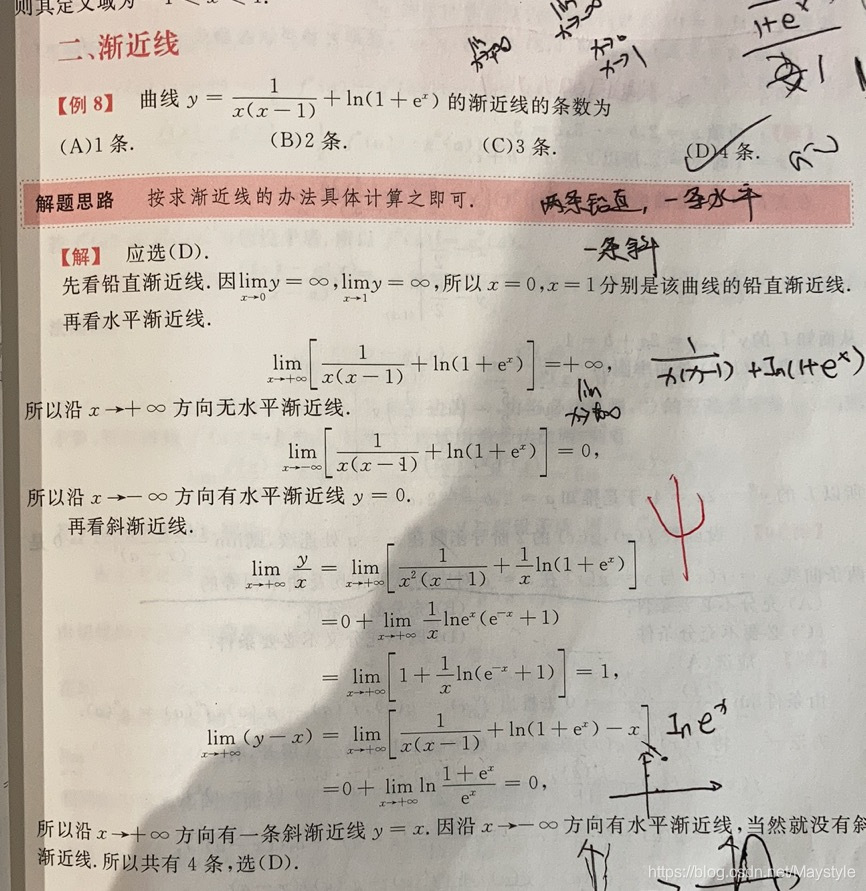 则其定义域为 -1<x<1.
二、渐近线
【例 8】 曲线 y = \frac{1}{x(x-1)} + ln(1+e^x) 的渐近线的条数为
(A)1 条. (B)2 条. (C)3 条. (D)4 条.
解题思路 按求渐近线的办法具体计算之即可. 两条铅直，一条水平
一条斜
【解】 应选(D).
先看铅直渐近线. 因\lim_{x→0} y = ∞, \lim_{x→1} y = ∞, 所以 x = 0, x = 1 分别是该曲线的铅直渐近线.
再看水平渐近线.
\lim_{x→+∞}[\frac{1}{x(x-1)} + ln(1+e^x)] = +∞, \frac{1}{x(x-1)} + ln(1+e^x)
所以沿 x→+∞ 方向无水平渐近线.
\lim_{x→-∞}[\frac{1}{x(x-1)} + ln(1+e^x)] = 0,
所以沿 x→-∞ 方向有水平渐近线 y = 0.
再看斜渐近线.
\lim_{x→+∞} \frac{y}{x} = \lim_{x→+∞}[\frac{1}{x^2(x-1)} + \frac{1}{x}ln(1+e^x)]
= 0 + \lim_{x→+∞} \frac{1}{x}lne^x(e^{-x}+1)
= \lim_{x→+∞}[1 + \frac{1}{x}ln(e^{-x}+1)] = 1,
\lim_{x→+∞}(y-x) = \lim_{x→+∞}[\frac{1}{x(x-1)} + ln(1+e^x) - x] ln e^x
= 0 + \lim_{x→+∞} ln\frac{1+e^x}{e^x} = 0,
所以沿 x→+∞ 方向有一条斜渐近线 y = x. 因沿 x→-∞ 方向有水平渐近线, 当然就没有斜
渐近线. 所以共有 4 条, 选(D).
https://blog.csdn.net/Maystyle